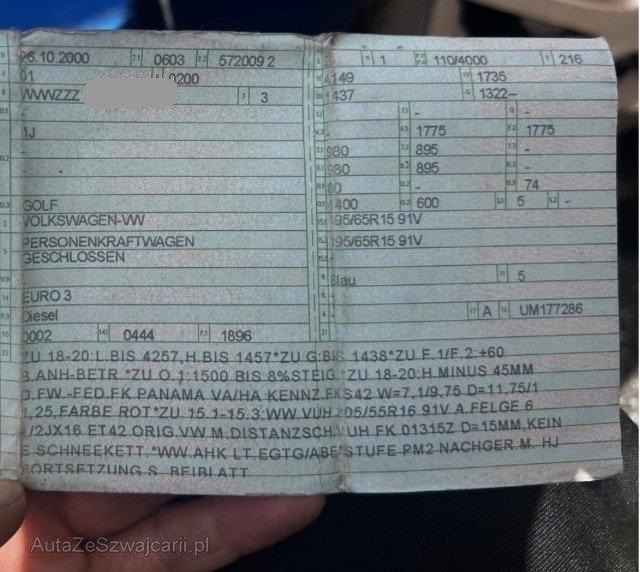 26.10.2000 2.1 0603 2.2 572009 2 9 1 110/4000 T 216
01 0200 4149 1735
WWWZZZ 3 3 1437 G 1322–
- - -
1J - 1775 F.2 1775
- 980 895
- 980 8.2 895
- 80 - U.3 74
GOLF 1400 O.2 600 S.1 5 S.2 -
VOLKSWAGEN-VW 195/65R15 91V
- -
PERSONENKRAFTWAGEN 195/65R15 91V
GESCHLOSSEN -
- Blau 11 5
EURO 3
Diesel 17 A 16 UM177286
0002 0444 P.1 1896 21
22 ZU 18-20:L.BIS 4257,H.BIS 1457*ZU G:BIS 1438*ZU F.1/F.2:+60
B.ANH-BETR.*ZU O.1:1500 BIS 8%STEIG.*ZU 18-20:H.MINUS 45MM
D.FW.-FED.FK PANAMA VA/HA KENNZ.FKS42 W=7,1/9,75 D=11,75/1
1,25,FARBE ROT*ZU 15.1-15.3:WW.VUH 205/55R16 91V A.FELGE 6
1/2JX16 ET42 ORIG.VW M.DISTANZSCH.VUH.FK 01315Z D=15MM,KEIN
E SCHNEEKETT.*WW.AHK LT.EGTG/ABE*STUFE PM2 NACHGER.M. HJ
FORTSETZUNG S. BEIBLATT
AutaZeSzwajcarii.pl